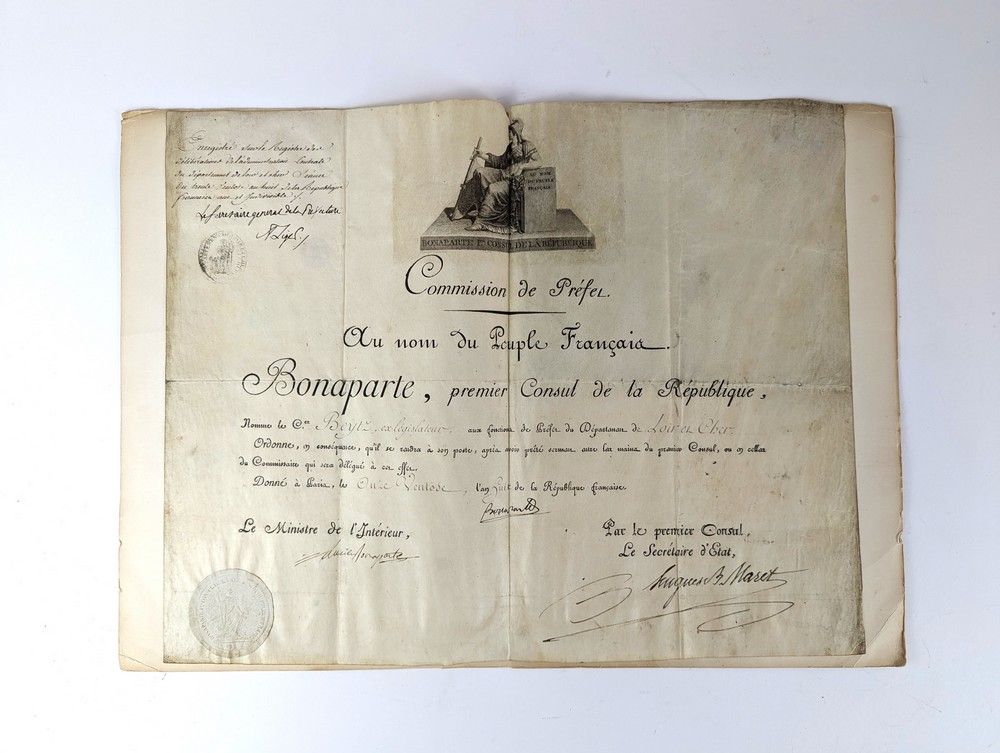 Enregistré sur le Registre des
délibérations de l'administration Centrale
du département de Loir et cher
du trente Ventose an huit de la République
française une et Indivisible
Le Secrétaire général de la Préfecture
AU NOM
DU PEUPLE
FRANÇAIS
BONAPARTE 1er CONSUL DE LA RÉPUBLIQUE
Commission de Préfet.
Au nom du Peuple Français.
Bonaparte, premier Consul de la République,
Nomme le C.en Beytz, exlégislateur, aux fonctions de Préfet du Département de Loir et Cher.
Ordonne, en conséquence, qu'il se rendra à son poste, après avoir prêté serment entre les mains du premier Consul, ou en celles
du Commissaire qui sera délégué à cet effet.
Donné à Paris, le Onze Ventose, l'an huit de la République française.
Bonaparte
Le Ministre de l'Intérieur,
Lucien Bonaparte
Par le premier Consul,
Le Secrétaire d'État,
Hugues B. Maret